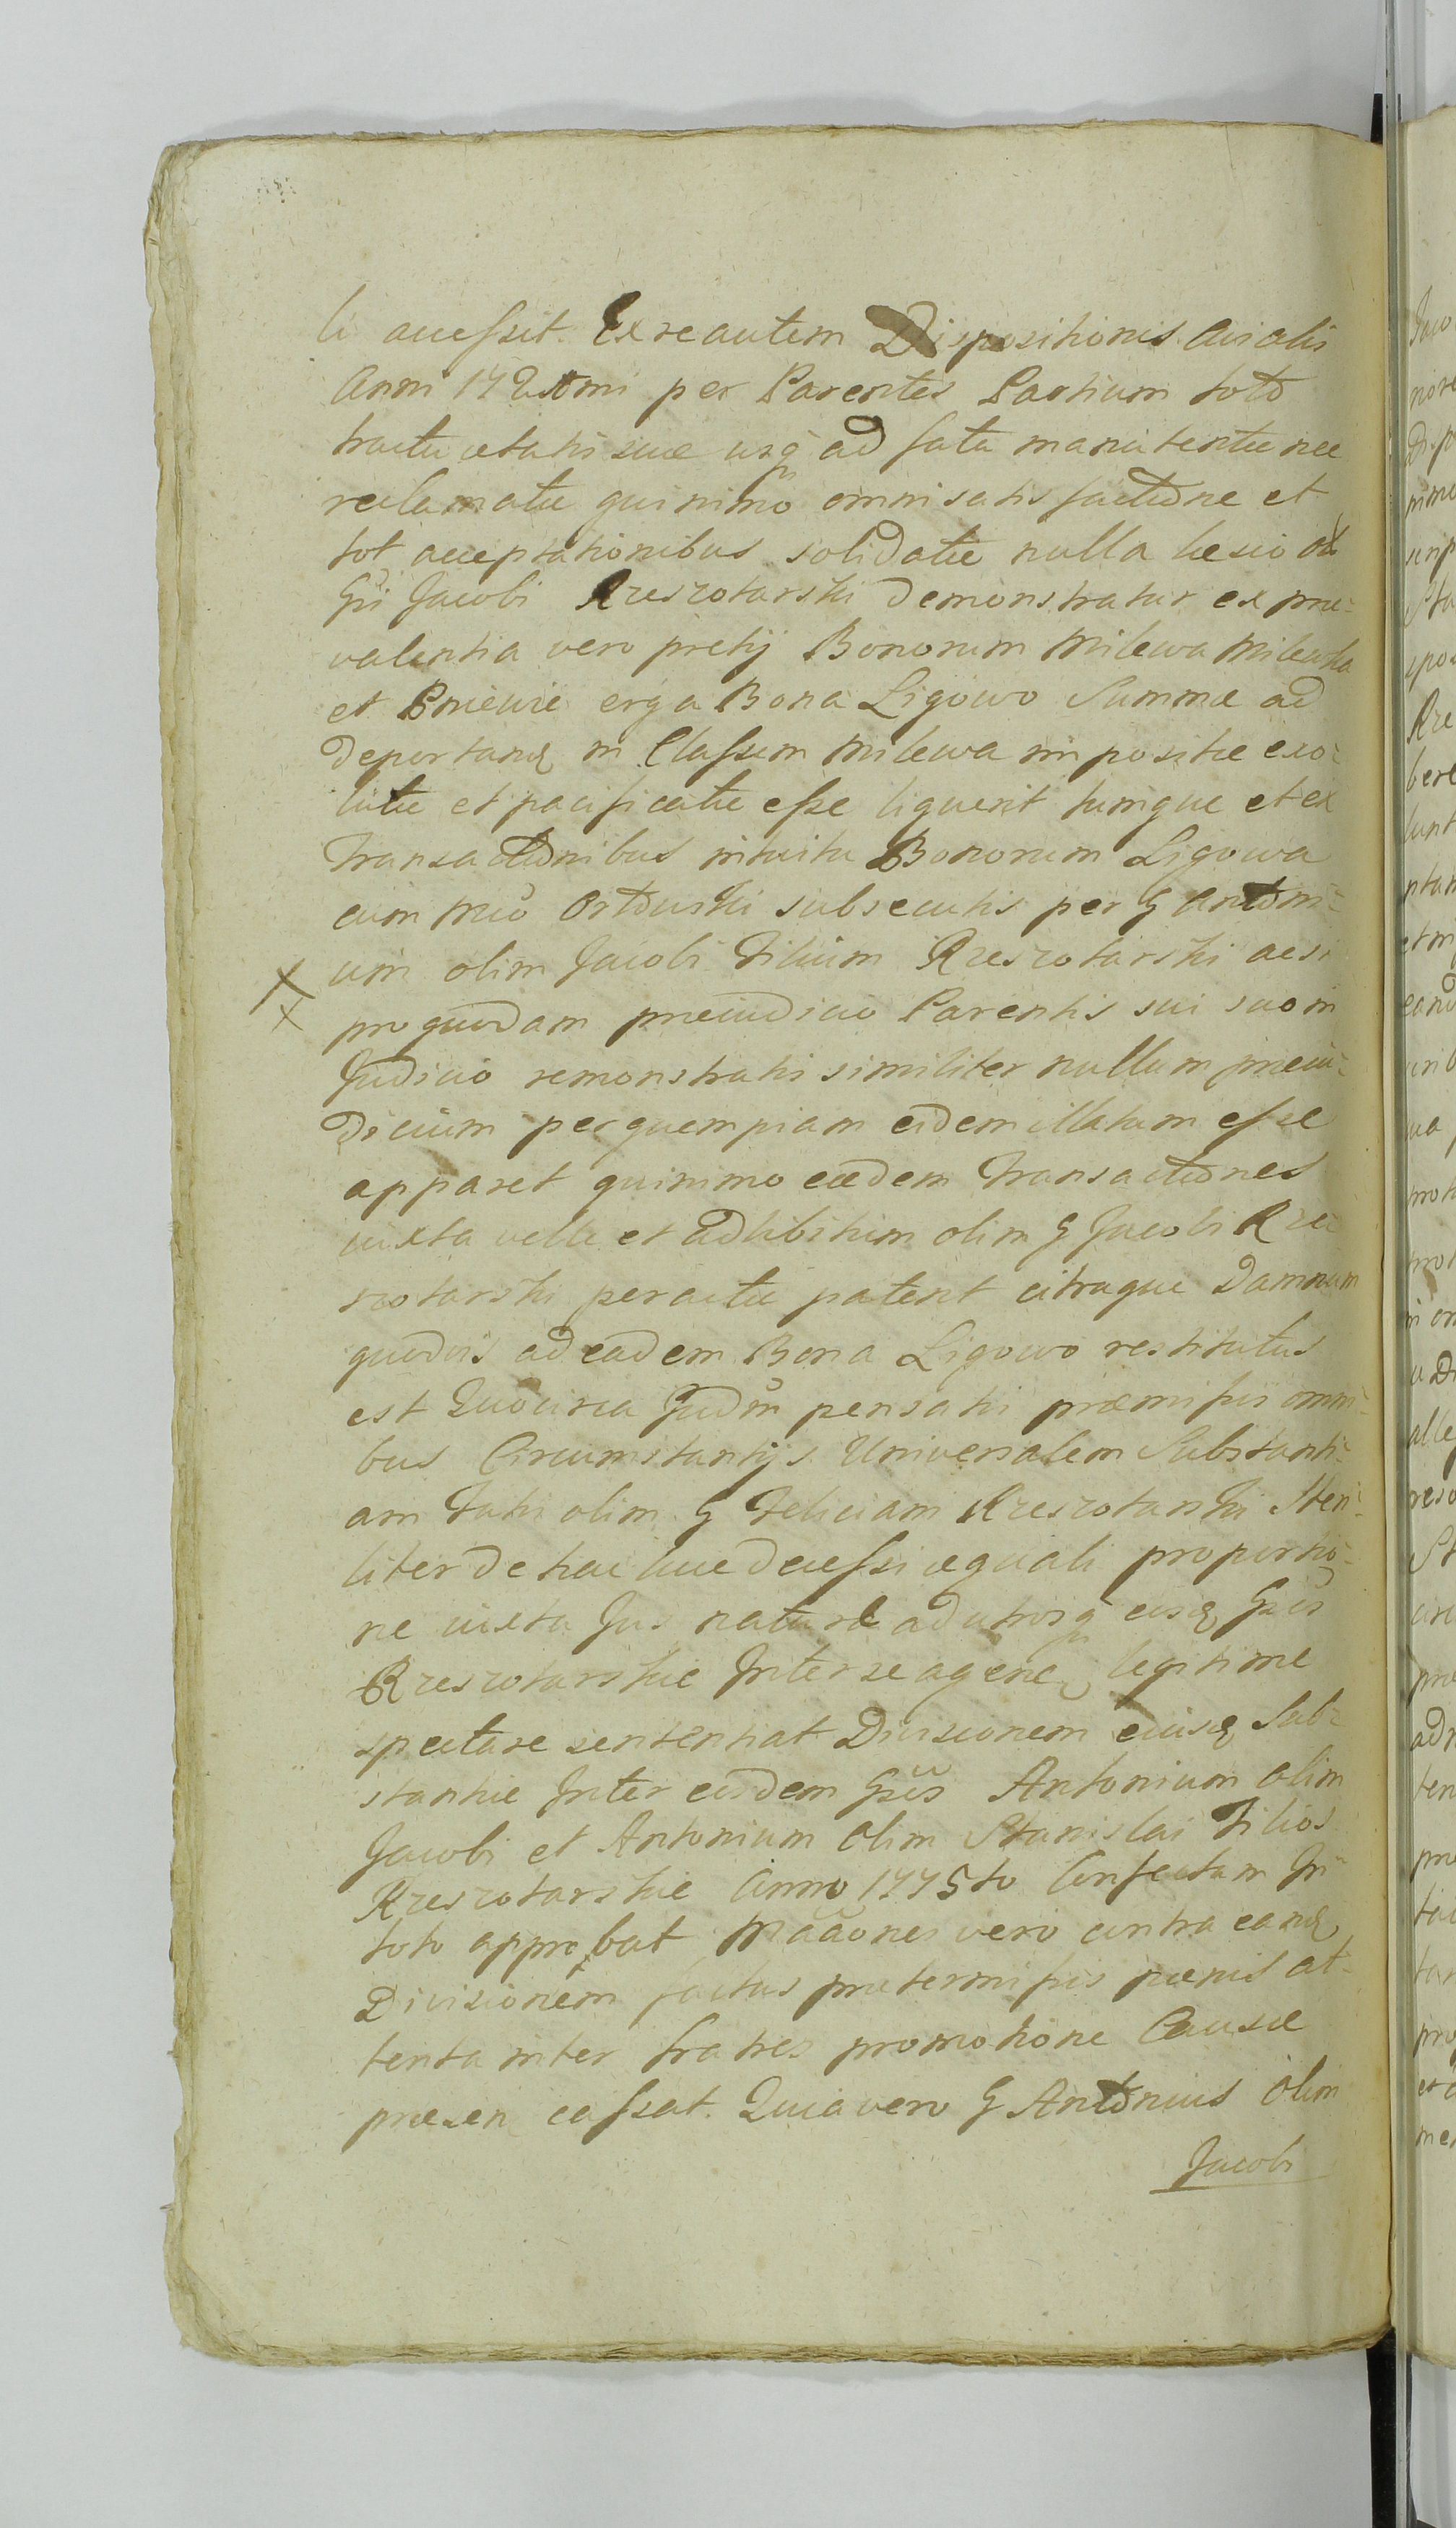 li accessit. Ex re autem Dispositionis avialis
Anni 172 mi per Parentes Partium toto
tractu ætatis suæ usq ad fata manutentæ nec
reclamatæ quinimo omni satisfactione et
tot acceptationibus solidatæ nulla læsio olim
Gsi Jacobi Rzeszotarski demonstratur ex præ-
valentia vero pretij Bonorum Milewa Milewka
et Pniewie erga Bona Ligowo Summæ ad
deportand in Classem Milewa impositæ exo-
lutæ et pacificatæ esse liquerit tumque et ex
Transactionibus intuitu Bonorum Ligowa
cum Orłowski subsecutis per G Antoni-
um olim Jacobi Filium Rzeszotarski acsi
pro quodam præiudicio Parentis sui suo in
Judicio remonstratis similiter nullum præiu-
dicium per quempiam eidem illatum esse
apparet quinimo eædem Transactiones
iuxta velle et adlibitum olim G Jacobi Rze
szotarski peractæ patent citraque Damnum
quodvis ad eadem Bona Ligowo restitutus
est Quocirca Judm pensatis præmissis omni-
bus Circumstantijs Universalem Substanti-
am Fati olim G Feliciani Rzeszotarski Steri-
liter de hac luce decessi æquali proportio-
ne iuxta Jus naturæ ad utrosq eosd Gsos
Rzeszotarskie Inter se agen legitime
spectare sententiat Divisionem eiusd Sub-
stantiæ Inter eosdem Gsos Antonium olim
Jacobi et Antonium olim Stanislai Filios
Rzeszotarskie Anno 1775to Confectam In
toto approbat Maãones vero contra eand
Divisionem factas prætermissis pœnis at-
tenta inter fratres promotione Causæ
præsen cassat. Quia vero G Antonius olim
Jacobi